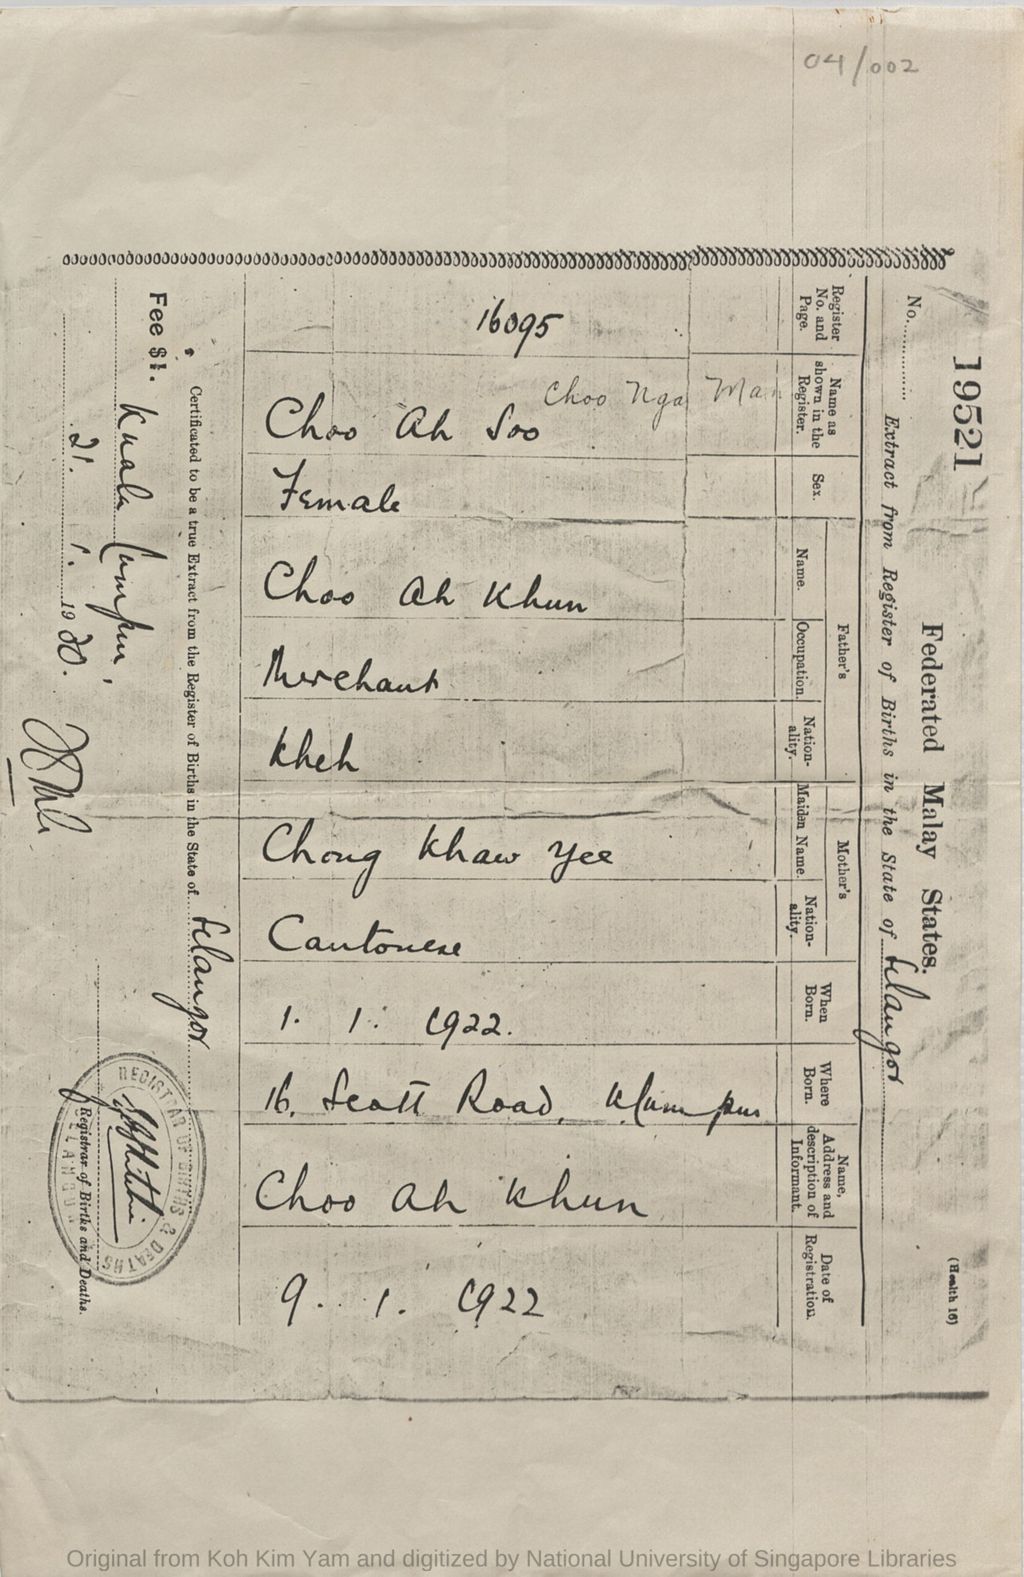 04/002
19521
(Health 16)
Federated Malay States.
No. Extract from Register of Births in the State of Selangor
Register No. and Page.
16095
Name as shown in the Register.
Choo Nga Man
Choo Ah Soo
Sex.
Female
Father's
Name.
Choo Ah Khun
Occupation.
Merchant
Nation-ality.
Kheh
Mother's
Maiden Name.
Chong Khaw Yee
Nation-ality.
Cantonese
When Born.
1. 1. 1922.
Where Born.
16, Scott Road, K/lumpur
Name, Address and description of Informant.
Choo Ah Khun
Date of Registration.
9. 1. 1922
Certificated to be a true Extract from the Register of Births in the State of Selangor
Fee $1.
Kuala Lumpur,
21. 1. 1930.
REGISTRAR OF BIRTHS & DEATHS
SELANGOR
Registrar of Births and Deaths.
Original from Koh Kim Yam and digitized by National University of Singapore Libraries